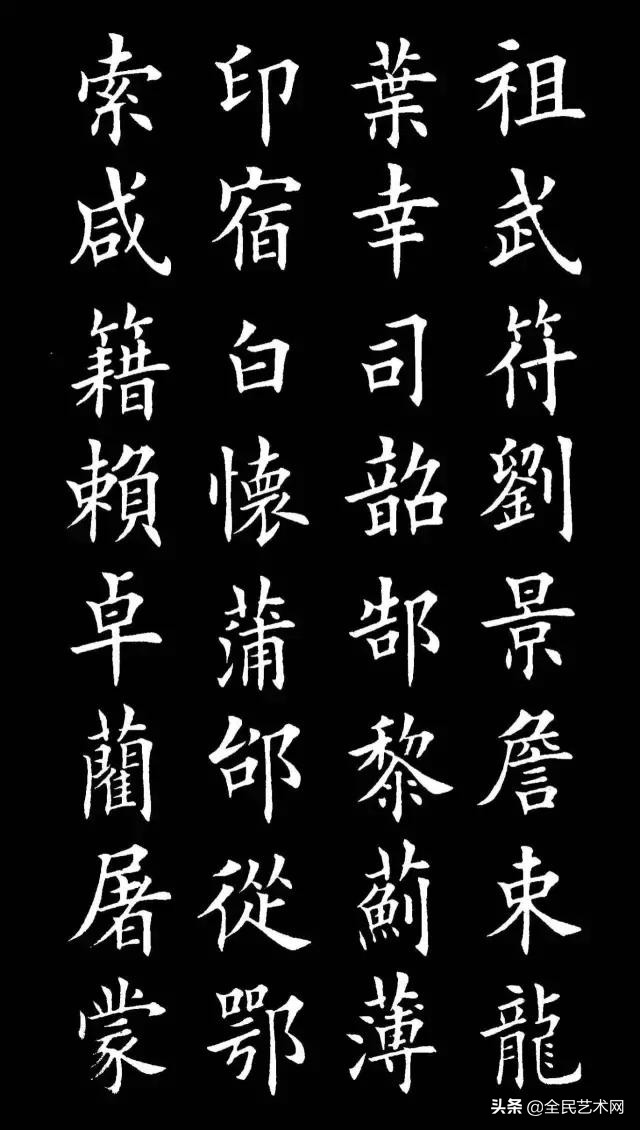 祖武符劉景詹束龍
葉幸司韶郜黎薊薄
印宿白懷蒲邰從鄂
索咸籍賴卓藺屠蒙
头条 @全民艺术网